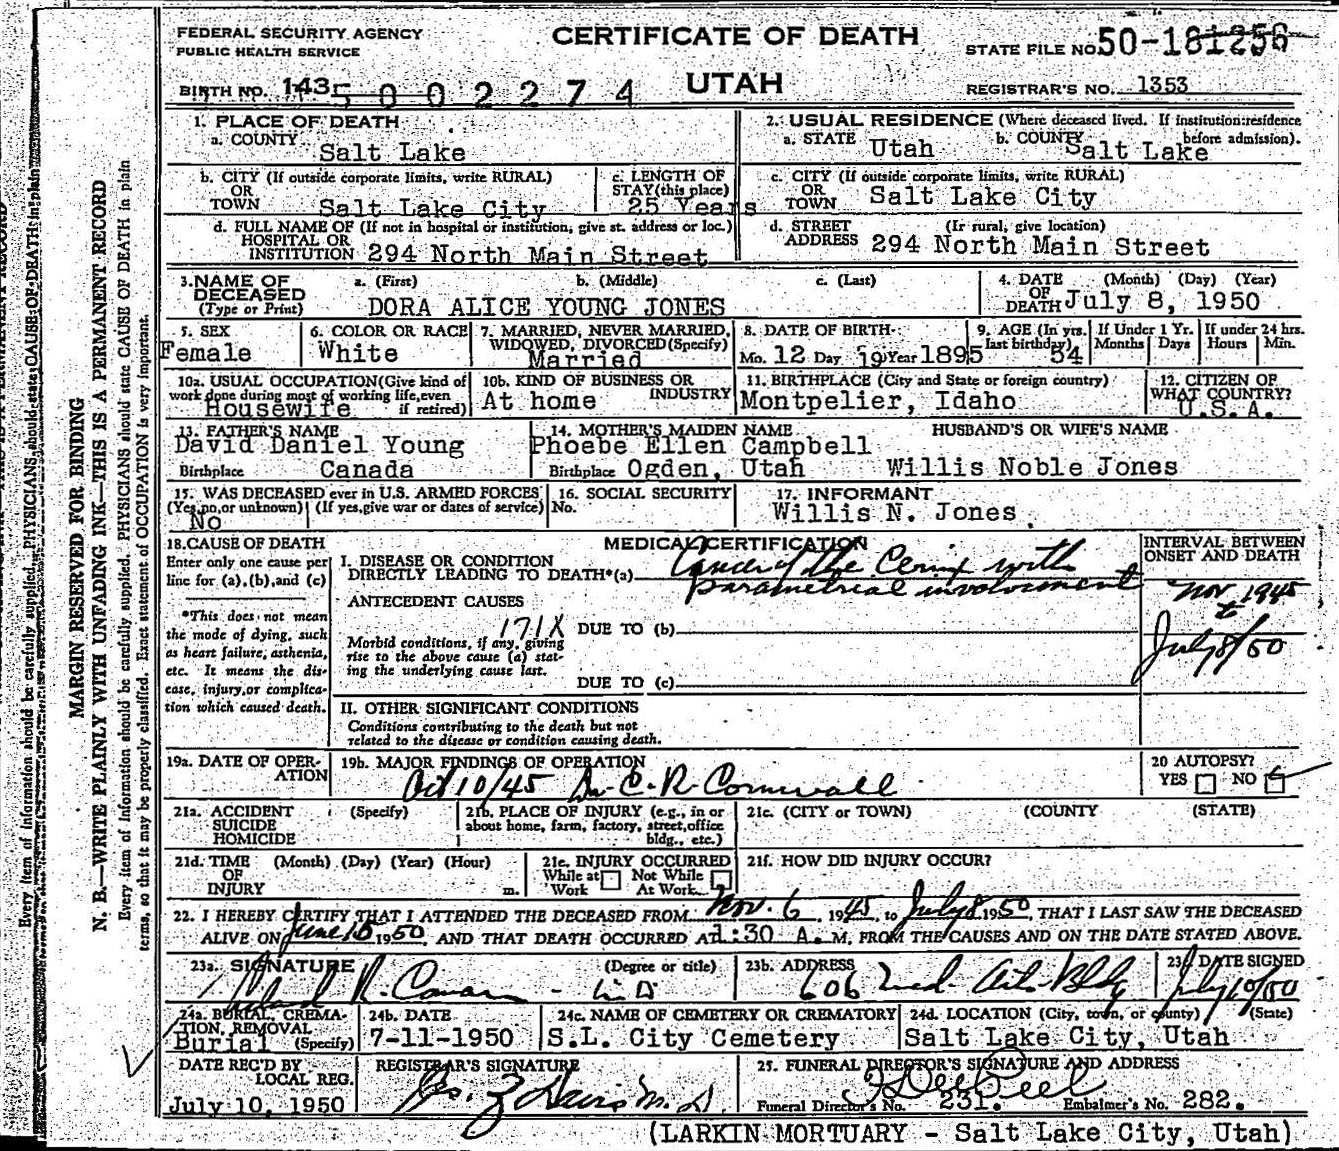 FEDERAL SECURITY AGENCY
PUBLIC HEALTH SERVICE
CERTIFICATE OF DEATH
STATE FILE NO. 50-181256
BIRTH NO. 143 5 0 0 2 2 7 4
UTAH
REGISTRAR'S NO. 1353
1. PLACE OF DEATH
a. COUNTY Salt Lake
2. USUAL RESIDENCE (Where deceased lived. If institution:residence before admission).
a. STATE Utah b. COUNTY Salt Lake
b. CITY (If outside corporate limits, write RURAL)
OR
TOWN Salt Lake City
c. LENGTH OF
STAY(this place)
25 Years
c. CITY (If outside corporate limits, write RURAL)
OR
TOWN Salt Lake City
d. FULL NAME OF (If not in hospital or institution, give st. address or loc.)
HOSPITAL OR
INSTITUTION 294 North Main Street
d. STREET (If rural, give location)
ADDRESS 294 North Main Street
3. NAME OF DECEASED (Type or Print)
a. (First) b. (Middle) c. (Last)
DORA ALICE YOUNG JONES
4. DATE OF DEATH (Month) (Day) (Year)
July 8, 1950
5. SEX
Female
6. COLOR OR RACE
White
7. MARRIED, NEVER MARRIED,
WIDOWED, DIVORCED(Specify)
Married
8. DATE OF BIRTH
Mo. 12 Day 19 Year 1895
9. AGE (In yrs. last birthday) 54
If Under 1 Yr. Months Days
If under 24 hrs. Hours Min.
10a. USUAL OCCUPATION(Give kind of
work done during most of working life, even
if retired)
Housewife
10b. KIND OF BUSINESS OR
INDUSTRY
At home
11. BIRTHPLACE (City and State or foreign country)
Montpelier, Idaho
12. CITIZEN OF
WHAT COUNTRY?
U.S.A.
13. FATHER'S NAME
David Daniel Young
Birthplace Canada
14. MOTHER'S MAIDEN NAME
Phoebe Ellen Campbell
Birthplace Ogden, Utah
HUSBAND'S OR WIFE'S NAME
Willis Noble Jones
15. WAS DECEASED ever in U.S. ARMED FORCES
(Yes,no,or unknown) (If yes,give war or dates of service)
No
16. SOCIAL SECURITY
No.
17. INFORMANT
Willis N. Jones
18. CAUSE OF DEATH
Enter only one cause per
line for (a),(b),and (c)
*This does not mean
the mode of dying, such
as heart failure, asthenia,
etc. It means the dis-
ease, injury, or complica-
tion which caused death.
MEDICAL CERTIFICATION
I. DISEASE OR CONDITION
DIRECTLY LEADING TO DEATH*(a) Cancer of the Cervix with
parametrial involvement
ANTECEDENT CAUSES
171X
Morbid conditions, if any, giving
rise to the above cause (a) stat-
ing the underlying cause last.
DUE TO (b)
DUE TO (c)
II. OTHER SIGNIFICANT CONDITIONS
Conditions contributing to the death but not
related to the disease or condition causing death.
INTERVAL BETWEEN
ONSET AND DEATH
Nov 1945
to
July 8/50
19a. DATE OF OPER-
ATION
19b. MAJOR FINDINGS OF OPERATION
Oct 10/45 Dr. C. R. Cornwall
20 AUTOPSY?
YES NO
21a. ACCIDENT (Specify)
SUICIDE
HOMICIDE
21b. PLACE OF INJURY (e.g., in or
about home, farm, factory, street,office
bldg., etc.)
21c. (CITY or TOWN) (COUNTY) (STATE)
21d. TIME (Month) (Day) (Year) (Hour)
OF
INJURY m.
21e. INJURY OCCURRED
While at Work Not While At Work
21f. HOW DID INJURY OCCUR?
22. I HEREBY CERTIFY THAT I ATTENDED THE DECEASED FROM Nov. 6, 1945, to July 8 1950, THAT I LAST SAW THE DECEASED
ALIVE ON June 1950, AND THAT DEATH OCCURRED AT 1:30 A. M, FROM THE CAUSES AND ON THE DATE STATED ABOVE.
23a. SIGNATURE (Degree or title)
R.
23b. ADDRESS
606 Med. Arts Bldg
23c DATE SIGNED
July 10/50
24a. BURIAL, CREMA-
TION, REMOVAL
(Specify)
Burial
24b. DATE
7-11-1950
24c. NAME OF CEMETERY OR CREMATORY
S.L. City Cemetery
24d. LOCATION (City, town, or county) (State)
Salt Lake City, Utah
DATE REC'D BY
LOCAL REG.
July 10, 1950
REGISTRAR'S SIGNATURE
M.D.
25. FUNERAL DIRECTOR'S SIGNATURE AND ADDRESS
Funeral Director's No. 231. Embalmer's No. 282.
(LARKIN MORTUARY - Salt Lake City, Utah)
MARGIN RESERVED FOR BINDING
N. B.—WRITE PLAINLY WITH UNFADING INK—THIS IS A PERMANENT RECORD
Every item of information should be carefully supplied. PHYSICIANS should state CAUSE OF DEATH in plain
terms, so that it may be properly classified. Exact statement of OCCUPATION is very important.
Every item of information should be carefully supplied. PHYSICIANS should state CAUSE OF DEATH in plain